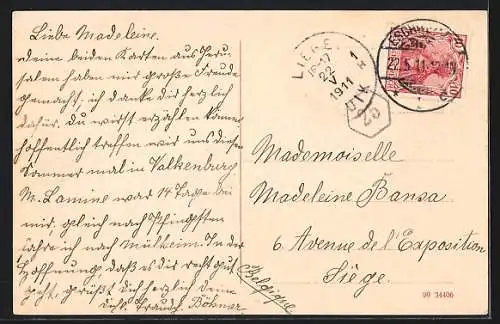 Liebe Madeleine.
deine beiden Karten aus Jeru-
salem haben mir große Freude
gemacht, ich danke dir herzlich
dafür. du wirst erzählen können
hoffentlich treffen wir uns diesen
Sommer mal in Valkenburg,
M. Lamine war 14 Tage bei
mir. gleich nach Pfingsten
fahre ich nach Mülheim. In der
Hoffnung, daß es dir recht gut
geht, grüßt dich herzlich deine
Böhmer
Mademoiselle
Madeleine Bansa
6 Avenue de l'Exposition
Liège.
Belgique
LIEGE
1
16-17
22
V
1911
22.5.11
99 34406